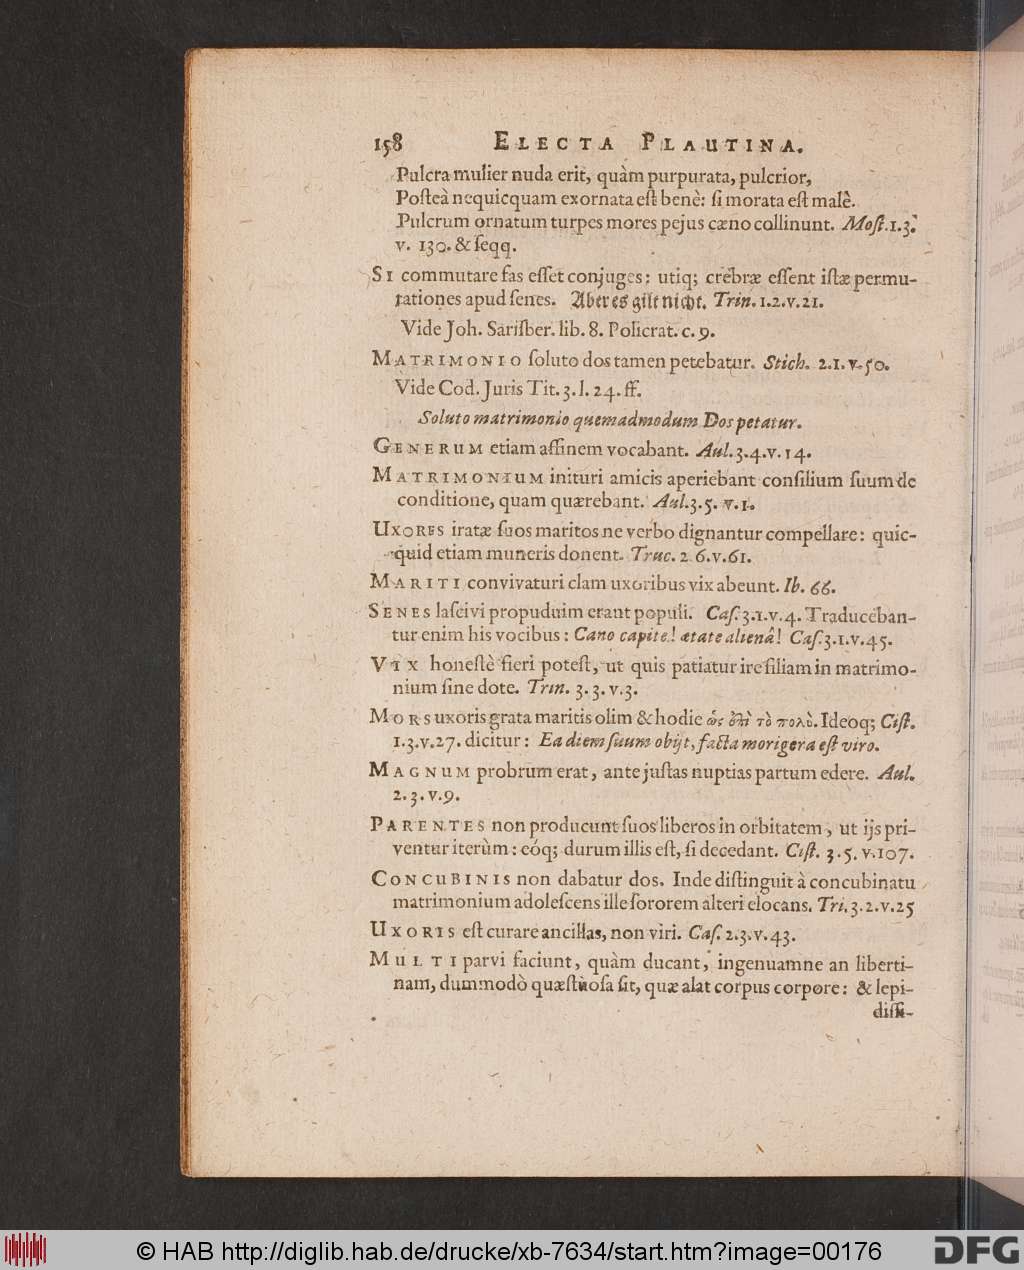 158 ELECTA PLAUTINA.
Pulcra mulier nuda erit, quàm purpurata, pulcrior,
Poſteà nequicquam exornata eſt benè: ſi morata eſt malè.
Pulcrum ornatum turpes mores pejus cæno collinunt. Moſt. 1.3.
v. 130. & ſeqq.
SI commutare fas eſſet conjuges: utiq; crebræ eſſent iſtæ permu-
tationes apud ſenes. Aber es gilt nicht. Trin. 1.2.v.21.
Vide Joh. Sariſber. lib. 8. Policrat. c. 9.
MATRIMONIO ſoluto dos tamen petebatur. Stich. 2.1.v.50.
Vide Cod. Juris Tit. 3. l. 24. ff.
Soluto matrimonio quemadmodum Dos petatur.
GENERUM etiam affinem vocabant. Aul. 3.4.v.14.
MATRIMONIUM inituri amicis aperiebant conſilium ſuum de
conditione, quam quærebant. Aul. 3.5. v.1.
UXORES iratæ ſuos maritos ne verbo dignantur compellare: quic-
quid etiam muneris donent. Truc. 2.6.v.61.
MARITI convivaturi clam uxoribus vix abeunt. Ib. 66.
SENES laſcivi propudium erant populi. Caſ. 3.1.v.4. Traduceban-
tur enim his vocibus: Cano capite! ætate alienâ! Caſ. 3.1.v.45.
VIX honeſtè fieri poteſt, ut quis patiatur ire filiam in matrimo-
nium ſine dote. Trin. 3.3.v.3.
MORS uxoris grata maritis olim & hodie ὡς ἐπὶ τὸ πολύ. Ideoq; Ciſt.
1.3.v.27. dicitur: Ea diem ſuum obijt, facta morigera eſt viro.
MAGNUM probrum erat, ante juſtas nuptias partum edere. Aul.
2.3.v.9.
PARENTES non producunt ſuos liberos in orbitatem, ut ijs pri-
ventur iterùm: eóq; durum illis eſt, ſi decedant. Ciſt. 3.5. v.107.
CONCUBINIS non dabatur dos. Inde diſtinguit à concubinatu
matrimonium adoleſcens ille ſororem alteri elocans. Tri. 3.2.v.25
UXORIS eſt curare ancillas, non viri. Caſ. 2.3.v.43.
MULTI parvi faciunt, quàm ducant, ingenuamne an liberti-
nam, dummodò quæſtuoſa ſit, quæ alat corpus corpore: & lepi-
diſſi-
© HAB http://diglib.hab.de/drucke/xb-7634/start.htm?image=00176
DFG